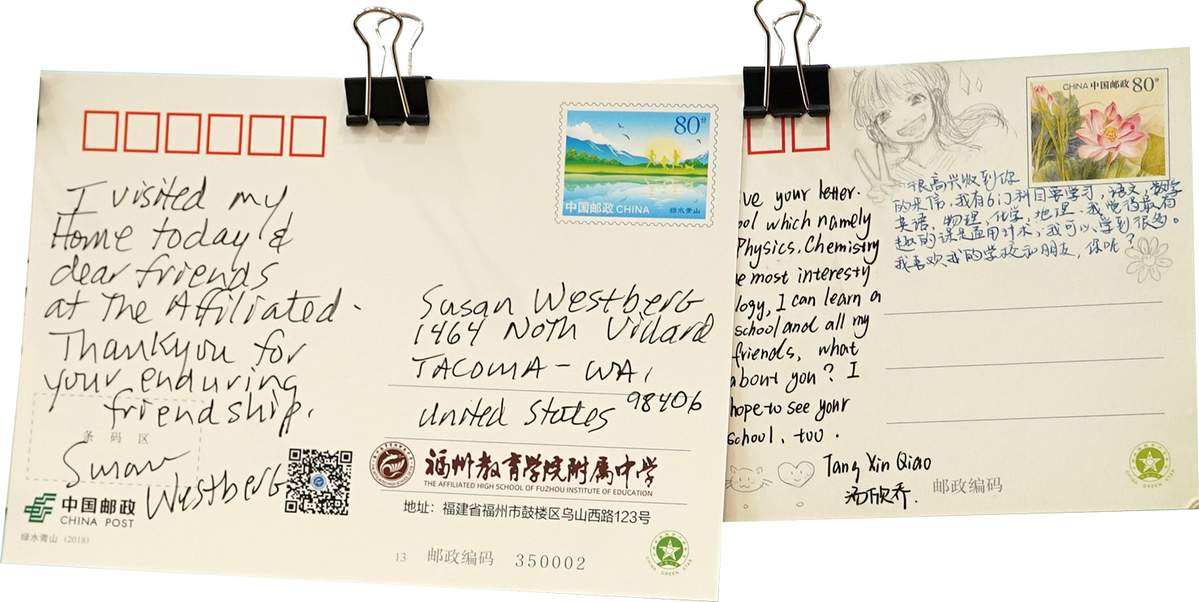 80分
中国邮政 CHINA
绿水青山
I visited my
Home today &
dear friends
at The Affiliated.
Thankyou for
your enduring
friendship.
Susan
Westberg
Susan Westberg
1464 Noth Villard
TACOMA - WA,
United States 98406
条码区
中国邮政
CHINA POST
绿水青山 (2018)
福州教育学院附属中学
THE AFFILIATED HIGH SCHOOL OF FUZHOU INSTITUTE OF EDUCATION
地址：福建省福州市鼓楼区乌山西路123号
13 邮政编码 350002
CHINA GREEN STAR
CHINA 中国邮政 80分
ve your letter.
ool which namely
Physics, Chemistry
e most interesty
logy, I can learn a
school and all my
friends, what
about you? I
hope to see your
school, too.
Tang Xin Qiao
汤欣乔
很高兴收到你
的来信，我有6门科目要学习，语文，数学
英语，物理，化学，地理，我觉得最有
趣的课是通用技术，我可以学到很多。
我喜欢我的学校和朋友，你呢？
邮政编码
CHINA GREEN STAR